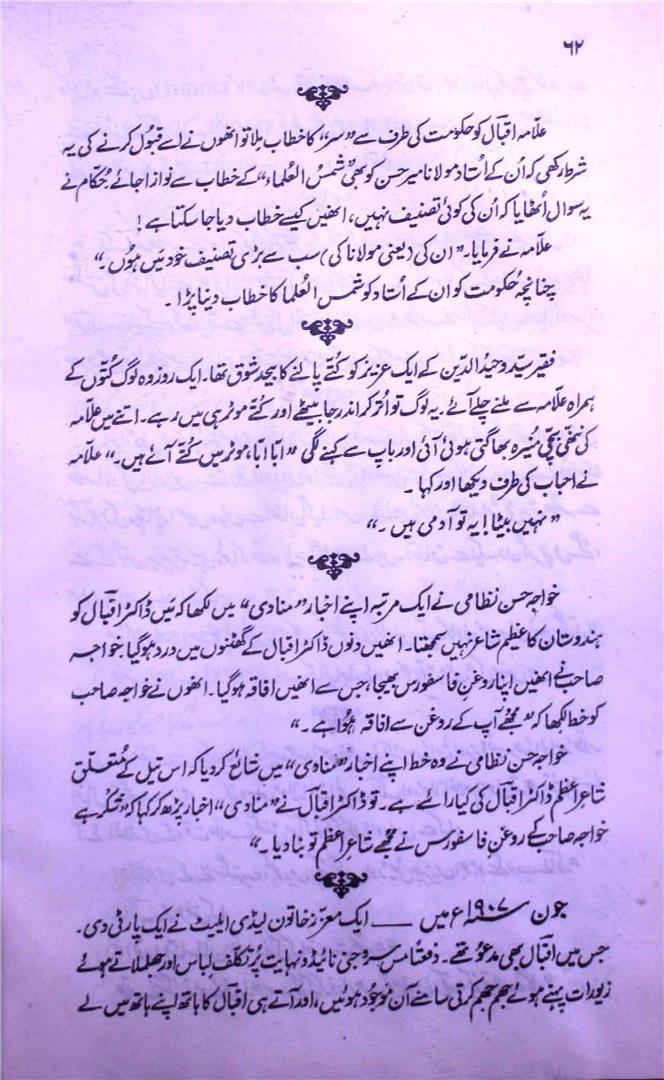 ۶۲
علامہ اقبالؔ کو حکومت کی طرف سے “سر” کا خطاب ملا تو انھوں نے اسے قبول کرنے کی یہ
شرط رکھی کہ اُن کے اُستاد مولانا میر حسن کو بھی “شمسُ العُلماء” کے خطاب سے نوازا جائے حُکام نے
یہ سوال اُٹھایا کہ اُن کی کوئی تصنیف نہیں، انھیں کیسے خطاب دیا جا سکتا ہے!
علامہ نے فرمایا۔ “ان کی (یعنی مولانا کی) سب سے بڑی تصنیف خود میں ہوں۔”
چنانچہ حُکومت کو ان کے اُستاد کو شمس العُلما کا خطاب دینا پڑا۔
فقیر سیّد وحیدُ الدّین کے ایک عزیز کو کُتّے پالنے کا بیحد شوق تھا۔ ایک روز وہ لوگ کُتّوں کے
ہمراہ علّامہ سے ملنے چلے آئے۔ یہ لوگ تو اُتر کر اندر جا بیٹھے اور کتّے موٹر ہی میں رہے۔ اتنے میں علّامہ
کی ننھی بچّی مُنیرہ بھاگتی ہوئی آئی اور باپ سے کہنے لگی “ابّا ابّا، موٹر میں کتّے آئے ہیں۔” علّامہ
نے احباب کی طرف دیکھا اور کہا۔
“نہیں بیٹا! یہ تو آدمی ہیں۔”
خواجہ حسن نظامی نے ایک مرتبہ اپنے اخبار “منادی” میں لکھا کہ میں ڈاکٹر اقبال کو
ہندوستان کا عظیم شاعر نہیں سمجھتا۔ انھیں دِلوں ڈاکٹر اقبال کے گھٹنوں میں درد ہو گیا، خواجہ
صاحب نے انھیں اپنا روغنِ فاسفورس بھیجا، جس سے انھیں افاقہ ہو گیا۔ انھوں نے خواجہ صاحب
کو خط لکھا کہ “مجھے آپ کے روغن سے افاقہ ہوا ہے۔”
خواجہ حسن نظامی نے وہ خط اپنے اخبار “منادی” میں شائع کر دیا کہ اس تیل کے مُتعلّق
شاعرِ اعظم ڈاکٹر اقبال کی کیا رائے ہے۔ تو ڈاکٹر اقبالؔ نے “منادی” اخبار پڑھ کر کہا کہ “شکر ہے
خواجہ صاحب کے روغنِ فاسفورس نے مجھے شاعرِ اعظم تو بنا دیا۔”
جون ۱۹۰۷ء میں ــــــ ایک معزز خاتون لیڈی ایلیٹ نے ایک پارٹی دی۔
جس میں اقبالؔ بھی مدعو تھے۔ دفعتاً مس سروجنی نائیڈو نہایت پُر تکلّف لباس اور جھلملاتے ہوئے
زیورات پہنے ہوئے چھم چھم کرتی سامنے آن موجود ہوئیں، اور آتے ہی اقبالؔ کا ہاتھ اپنے ہاتھ میں لے